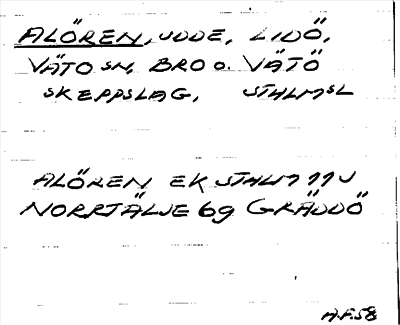 ALÖREN, UDDE, LIDÖ,
VÄTÖ SN, BRO O. VÄTÖ
SKEPPSLAG, STHLMSL
ALÖREN EK STHLM 11 J
NORRTÄLJE 6g GRÄDDÖ
A.F.58